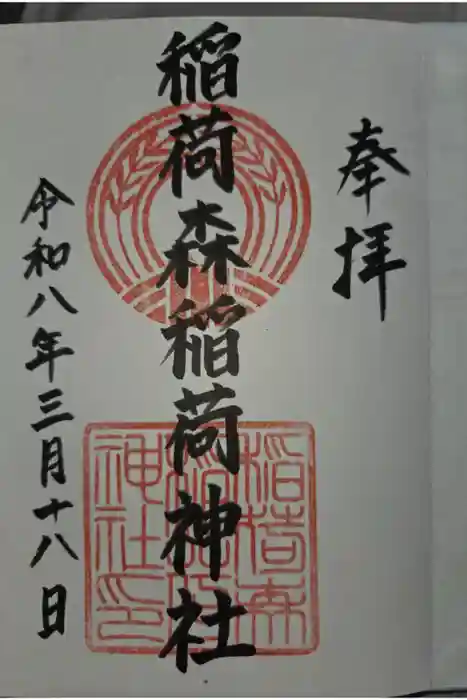 奉拝
稲荷森稲荷神社
令和八年三月十八日
稲荷森
神社印